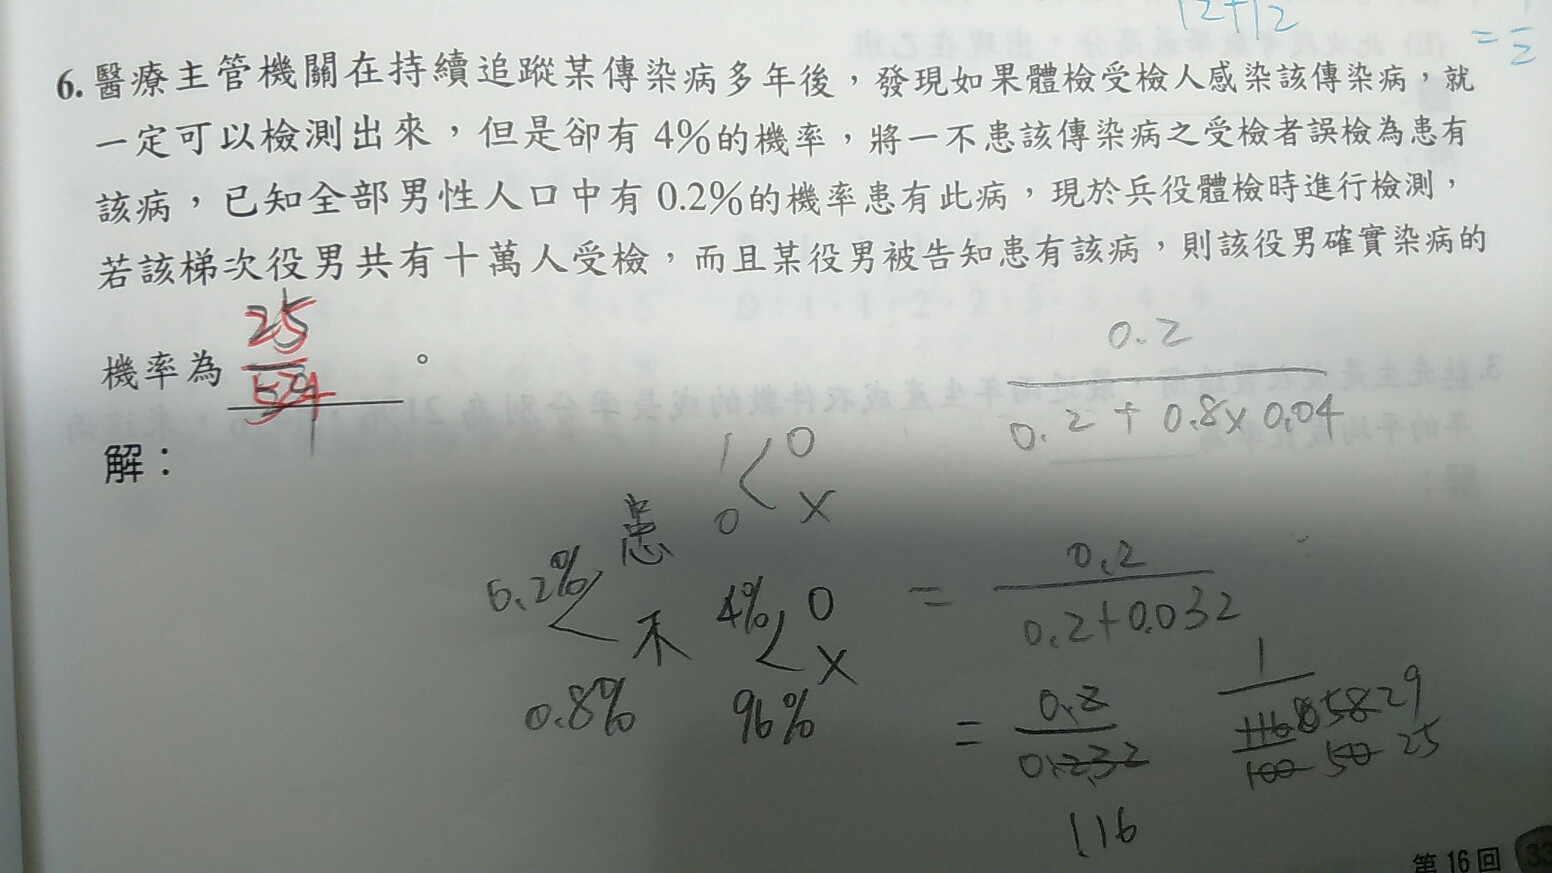 12+12
=
2
6. 醫療主管機關在持續追蹤某傳染病多年後，發現如果體檢受檢人感染該傳染病，就
一定可以檢測出來，但是卻有4%的機率，將一不患該傳染病之受檢者誤檢為患有
該病，已知全部男性人口中有0.2%的機率患有此病，現於兵役體檢時進行檢測，
若該梯次役男共有十萬人受檢，而且某役男被告知患有該病，則該役男確實染病的
機率為 25/524 。
解：
1 O
0 X
患
0.2%
不 4% O
X
0.8% 96%
0.2
0.2+0.8×0.04
= 0.2
0.2+0.032
= 0.2
0.232
1.16
1
116 58 29
100 50 25
第16回 33